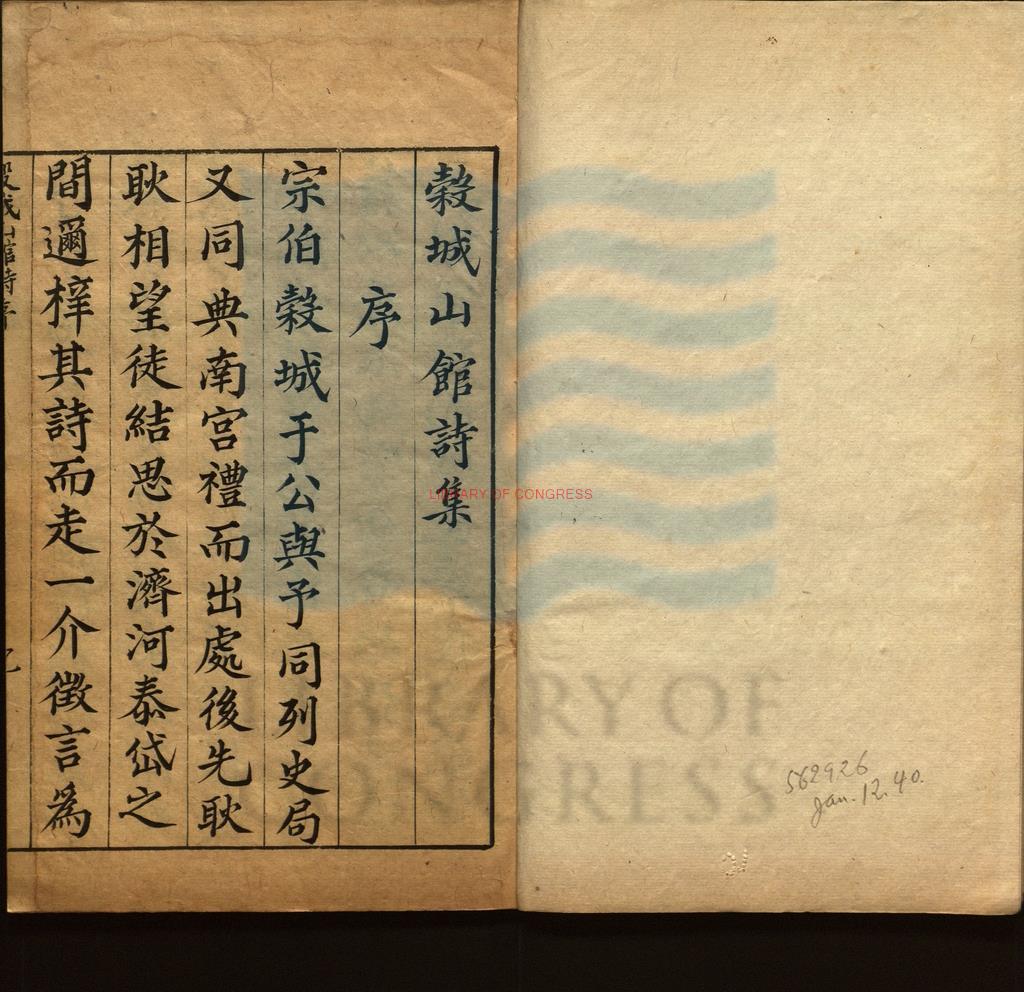 穀城山館詩集
序
宗伯穀城于公與予同列史局
又同典南宮禮而出處後先耿
耿相望徒結思於濟河泰岱之
間邇梓其詩而走一介徵言為
穀城山館詩序
LIBRARY OF CONGRESS
LIBRARY OF
CONGRESS
562926
Jan. 12. 40.